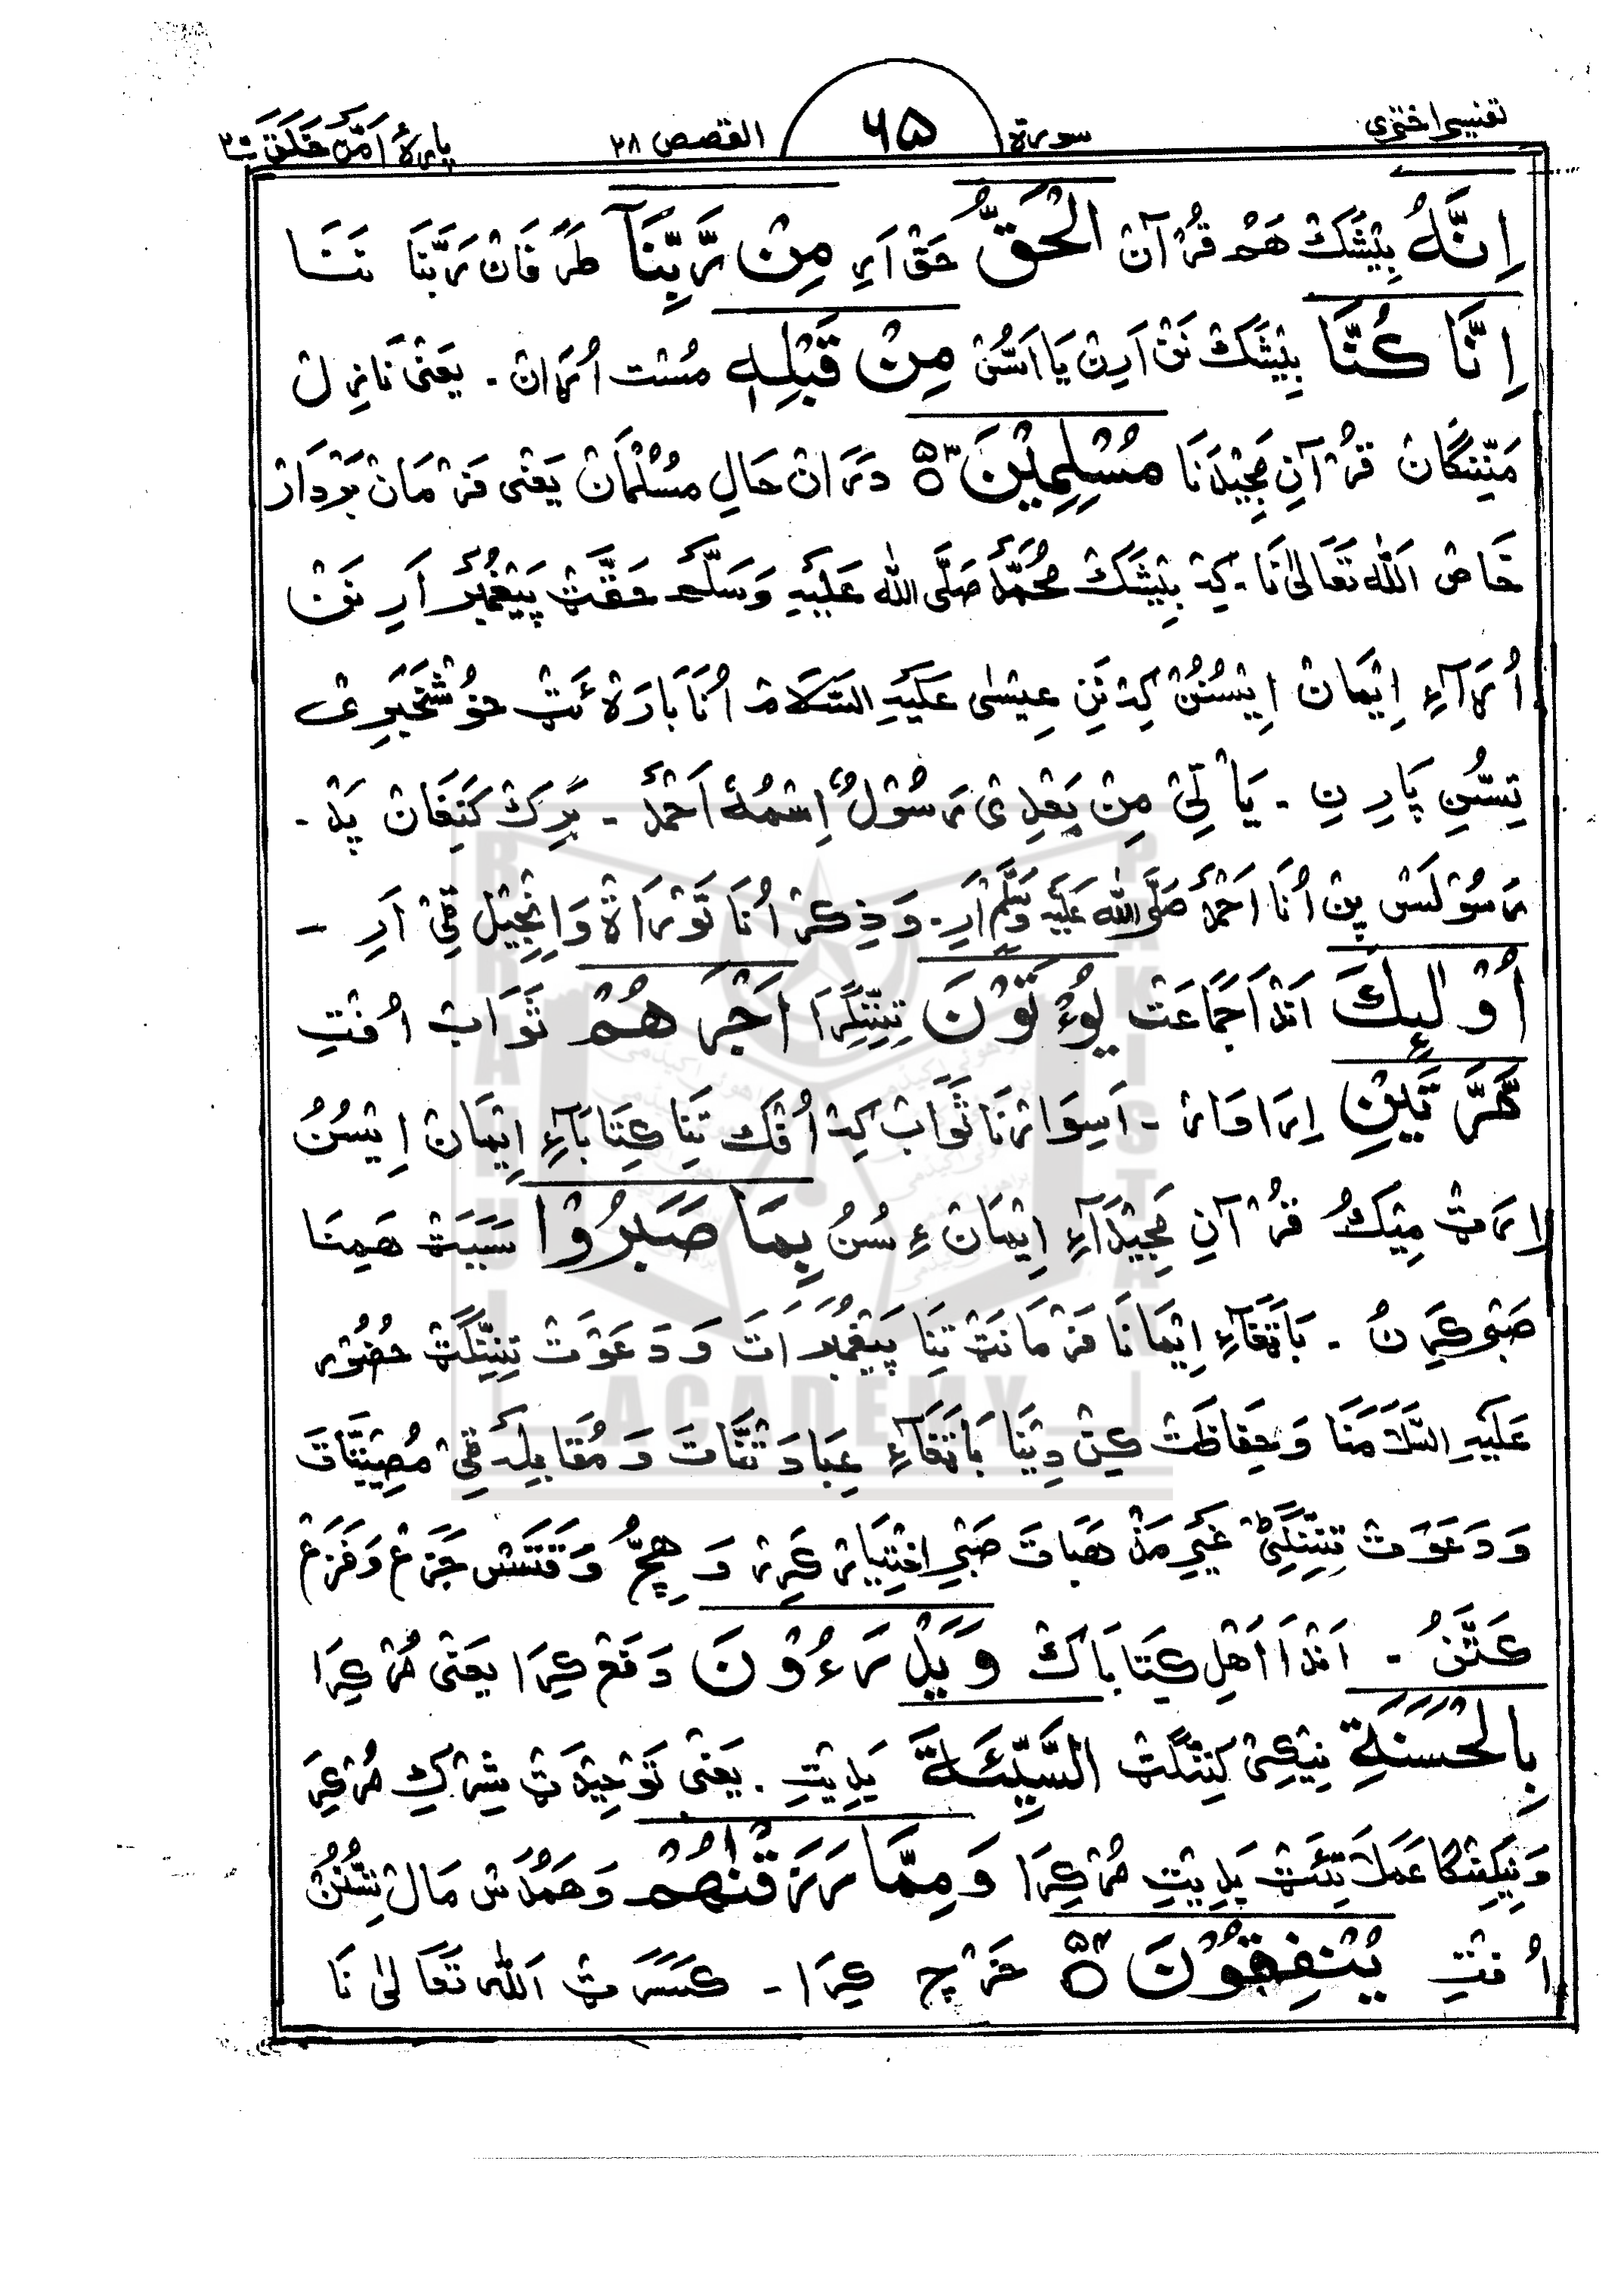 تفسیر اختری سورة ۶۵ القصص ۲۸ پارهٔ اَمَّنْ خَلَقَ ۲۰
اِنَّهُ بِیْشَکْ هَمْ قُرْآنْ الْحَقُّ حَقْ اَرِ مِنْ رَّبِّنَآ طَرَفَانْ رَبَّنَا نَنَا
اِنَّا کُنَّا بِیْشَکْ نَنْ اَرِنْ یَا اَسُّنْ مِنْ قَبْلِهٖ مُسْت اُرَانْ - یَعْنٰی نَازِلْ
مَنِّنْگَانْ قُرْآنِ مَجِیْدَنَا مُسْلِمِیْنَ ۵۳ دَرَانْ حَالِ مُسُلْمَانْ یَعْنٰی فَرْمَانْ بَرْدَارْ
خَاصْ اَللّٰه تَعَالٰی نَا - کِهْ بِیْشَکْ مُحَمَّدْ صَلَّی اللّٰه عَلَیْهِ وَسَلَّمْ حَقَّتْ پَیْغَمْبَرْ اَرِ نَنْ
اُرَآءِ اِیْمَانْ اِیْسُنُنْ کِهْ نَنِ عِیْسٰی عَلَیْهِ السَّلَامْ اُنَا بَارَهْ ئَتْ خُوْشْخَبَرِیْ
تِسُّنِ پَارِنِ - یَاْتِیْ مِنْ بَعْدِیْ رَسُوْلٌ اِسْمُهٗ اَحْمَدْ - بَرِکْ کَنِغَانْ پَدْ -
رَسُوْلَسْ پِنْ اُنَا اَحْمَدْ صَلَّی اللّٰه عَلَیْهِ وَسَلَّمْ اَرِ - وَ ذِکْرْ اُنَا تَوْرَاةْ وَ اِنْجِیْل ٹِیْ اَرِ -
اُوْلٰٓئِكَ اَنْدَا جَمَاعَتْ یُؤْتَوْنَ تِنِنْگِرَا اَجْرَهُمْ ثَوَابْ اُفْتِ
مَّرَّتَیْنِ اِرَاوَارْ - اَسِوَارْنَا ثَوَابْ کِهْ اُفْکْ تِنَا کِتَابَآءِ اِیْمَانْ اِیْسُنُ
اِرَٹْ مِیْکُ قُرْآنِ مَجِیْدَآءِ اِیْمَانْ ءِ سُنُ بِمَا صَبَرُوْا سَبَبَتْ هَمِنَا
صَبْرْ کَرِنُ - بَاتَغَآءِ اِیْمَانَا فَرْمَانَتْ تِنَا پَیْغَمْبَرَاتَ وَ دَعْوَتْ تِنِنْگَتْ حُضُوْرْ
عَلَیْهِ السَّلَامَنَا وَ حِفَاظَتْ کِنْ دِیْنَا بَاتَغَآءِ عِبَادَتَّاتَ وَ مُقَابِلَه ٹِیْ مُصِیْبَتَّاتَ
وَ دَعْوَتْ تِنِنْگِٹِیْ غَیْرِ مَذْهَبَاتَ صَبْرِ اِخْتِیَارْ کَرِرْ وَ هِچُّ وَقْتَسْ جَزَعْ وَ فَزَعْ
کَتَنُ - اَنْدَا اَهْلِ کِتَابَاکْ وَ یَدْرَءُوْنَ دَفَعْ کِرَا یَعْنٰی مُرْکِرَا
بِالْحَسَنَةِ نِیْکِیْ کَنِنْگَتْ السَّیِّئَةَ بَدِیْتِ - یَعْنٰی تَوْحِیْدَتْ شِرْکِ مُرْکِرَ
وَ نِیْکِنْگَا عَمَلَ تِیْئَتْ بَدِیْتِ مُرْکِرَا وَ مِمَّا رَزَقْنٰهُمْ وَ هَمُدَسْ مَالْ تِسُّنُنْ
اُفْتِ یُنْفِقُوْنَ ۵۴ خَرْچ کِرَا - کَسَرَٹْ اَللّٰه تَعَالٰی نَا
BRAHUI ACADEMY PAKISTAN